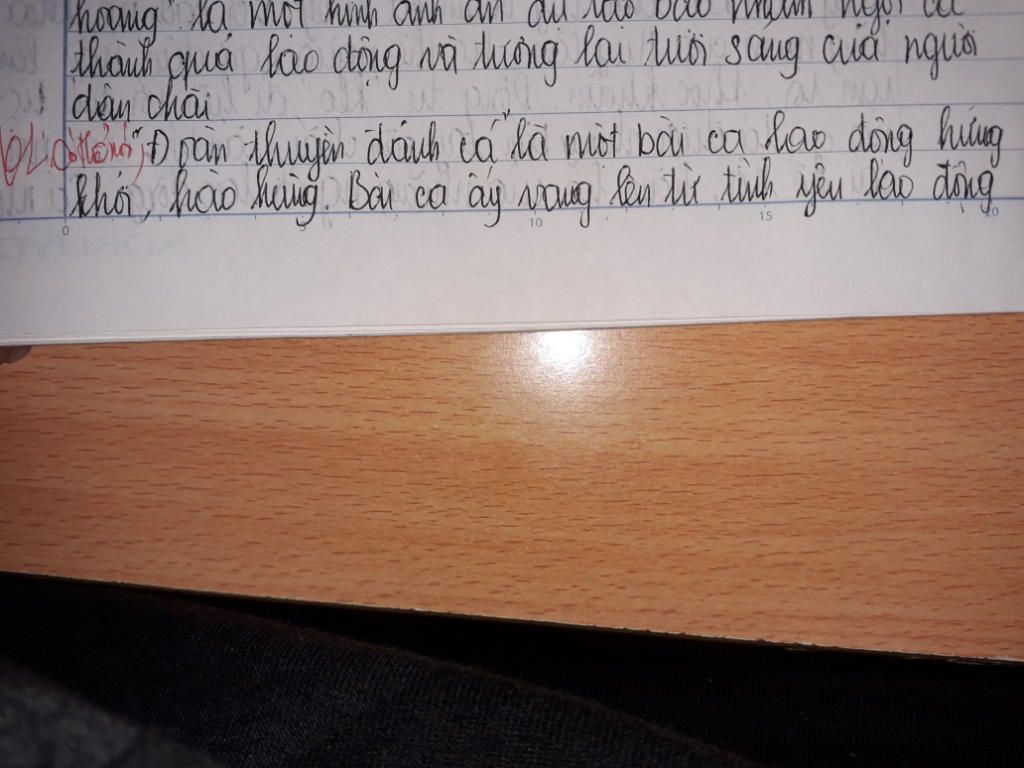 hoàng" là một hình ảnh ẩn dụ táo bạo nhằm ngợi ca
thành quả lao động và tương lai tươi sáng của người
dân chài
"Đoàn thuyền đánh cá" là một bài ca lao động hứng
khởi, hào hùng. Bài ca ấy vang lên từ tình yêu lao động
0 5 10 15 20